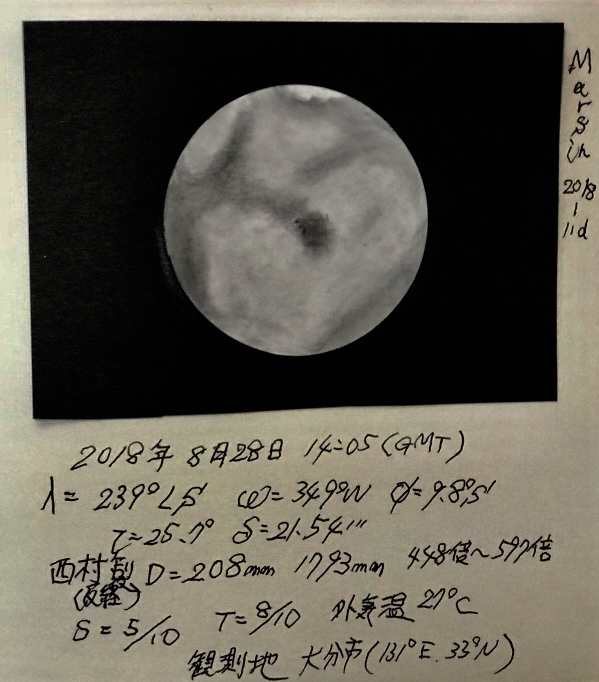 Mars in 2018-11d
2018年 8月28日 14:05 (GMT)
λ= 239°LS ω=349°W φ=9.8°S
τ=25.7° δ=21.54"
西村製 D=208mm 1793mm 448倍~597倍
(反経)
S=5/10 T=8/10 外気温 27°C
観測地 大分市(131°E. 33°N)